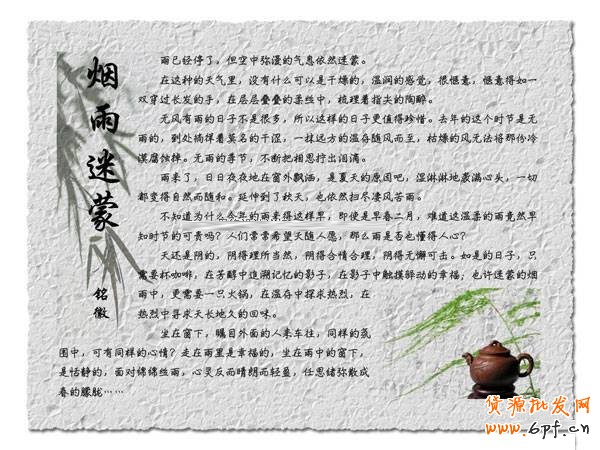 烟雨迷蒙
铭徽
雨已经停了，但空中弥漫的气息依然迷蒙。
在这种的天气里，没有什么可以是干燥的，温润的感觉，很惬意，惬意得如一
双穿过长发的手，在层层叠叠的柔丝中，梳理着指尖的陶醉。
无风有雨的日子不是很多，所以这样的日子更值得珍惜。去年的这个时节是无
雨的，到处横徉着莫名的干涩，一抹远方的温存随风而至，枯燥的风无法将那份冷
漠腐蚀掉。无雨的季节，不断把相思拧出泪滴。
雨来了，日日夜夜地在窗外飘洒，是夏天的原因吧，湿淋淋地蒙满心头，一切
都变得自然而随和。延伸到了秋天，也依然扫尽凄风苦雨。
不知道为什么今年的雨来得这样早，即使是早春二月，难道这温柔的雨竟然早
知时节的可贵吗？人们常常希望天随人愿，那么雨是否也懂得人心？
天还是阴的，阴得理所当然，阴得合情合理，阴得无懈可击。如是的日子，只
需要杯咖啡，在芳醇中追溯记忆的影子，在影子中触摸悸动的幸福，也许迷蒙的烟
雨中，更需要一只火锅，在温存中探求热烈，在
热烈中寻求天长地久的回味。
坐在窗下，瞩目外面的人来车往，同样的氛
围中，可有同样的心情？走在雨里是幸福的，坐在雨中的窗下，
是恬静的，面对绵绵丝雨，心灵反而晴朗而轻盈，任思绪弥散成
春的朦胧……
货源批发网
www.6pf.cn